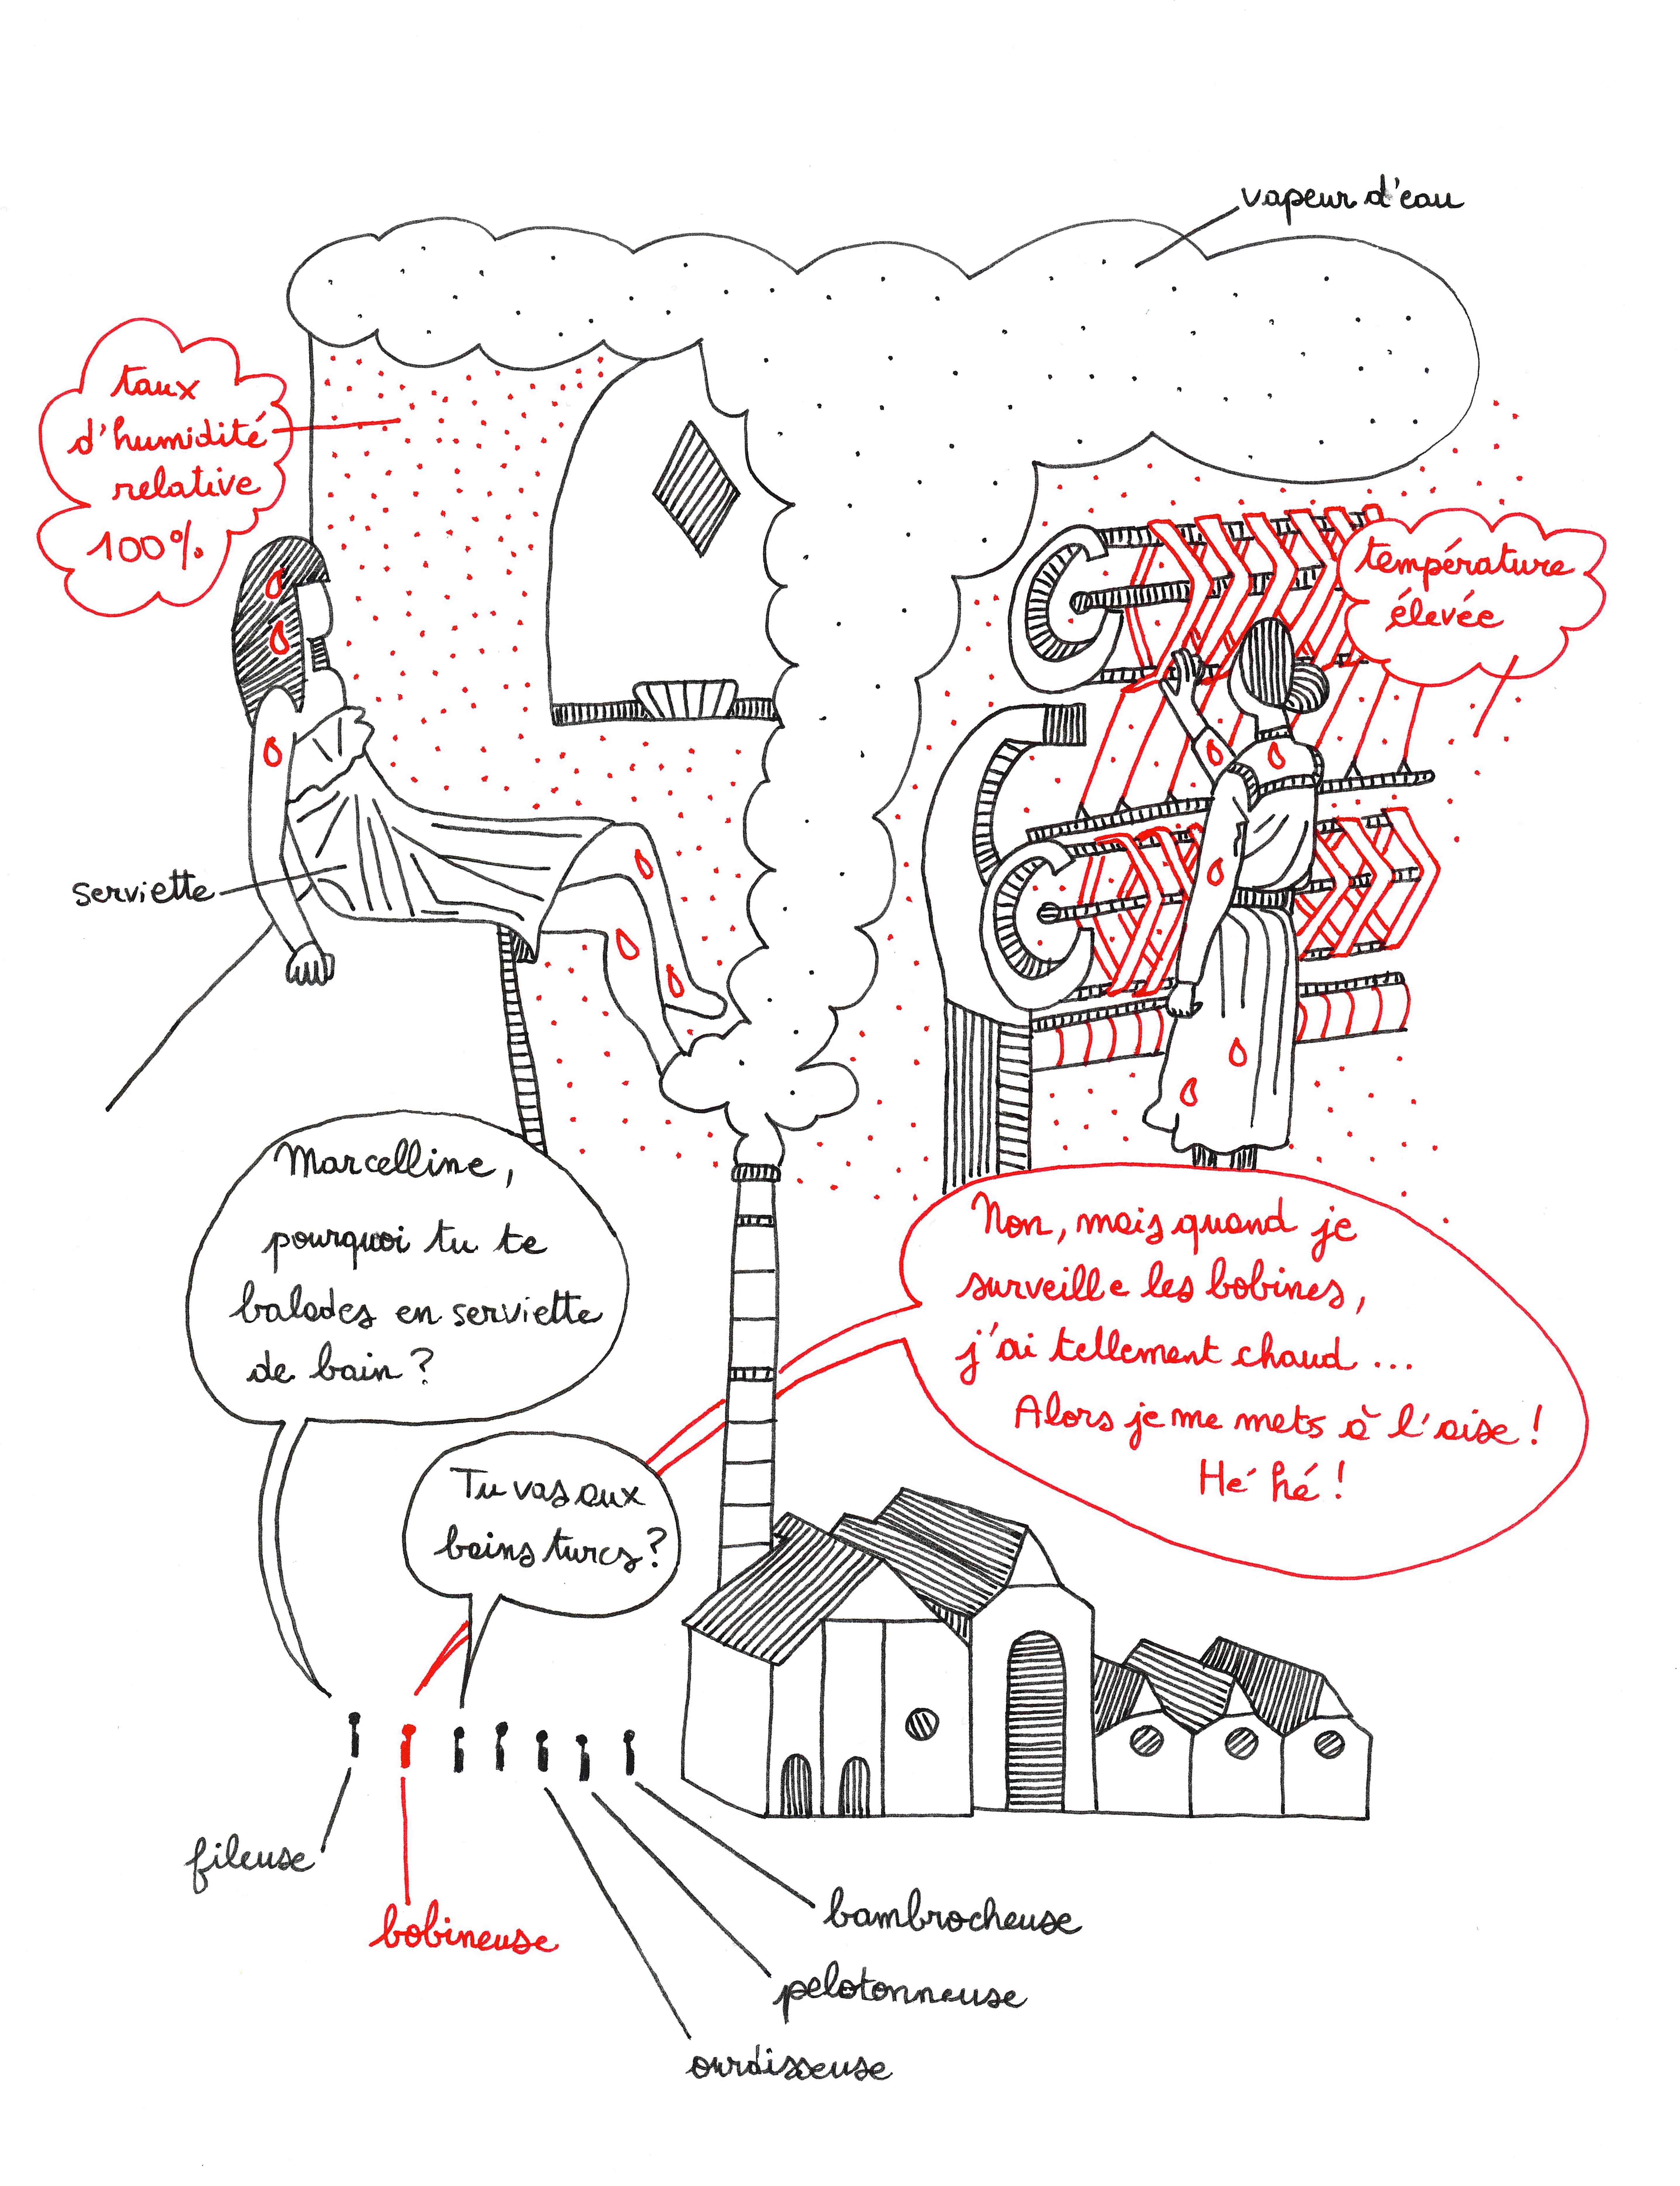 vapeur d'eau
taux
d'humidité
relative
100%
température
élevée
serviette
Marcelline,
pourquoi tu te
balades en serviette
de bain ?
Tu vas aux
bains turcs ?
Non, mais quand je
surveille les bobines,
j'ai tellement chaud ...
Alors je me mets à l'aise !
Hé hé !
fileuse
bobineuse
bambrocheuse
pelotonneuse
ourdisseuse